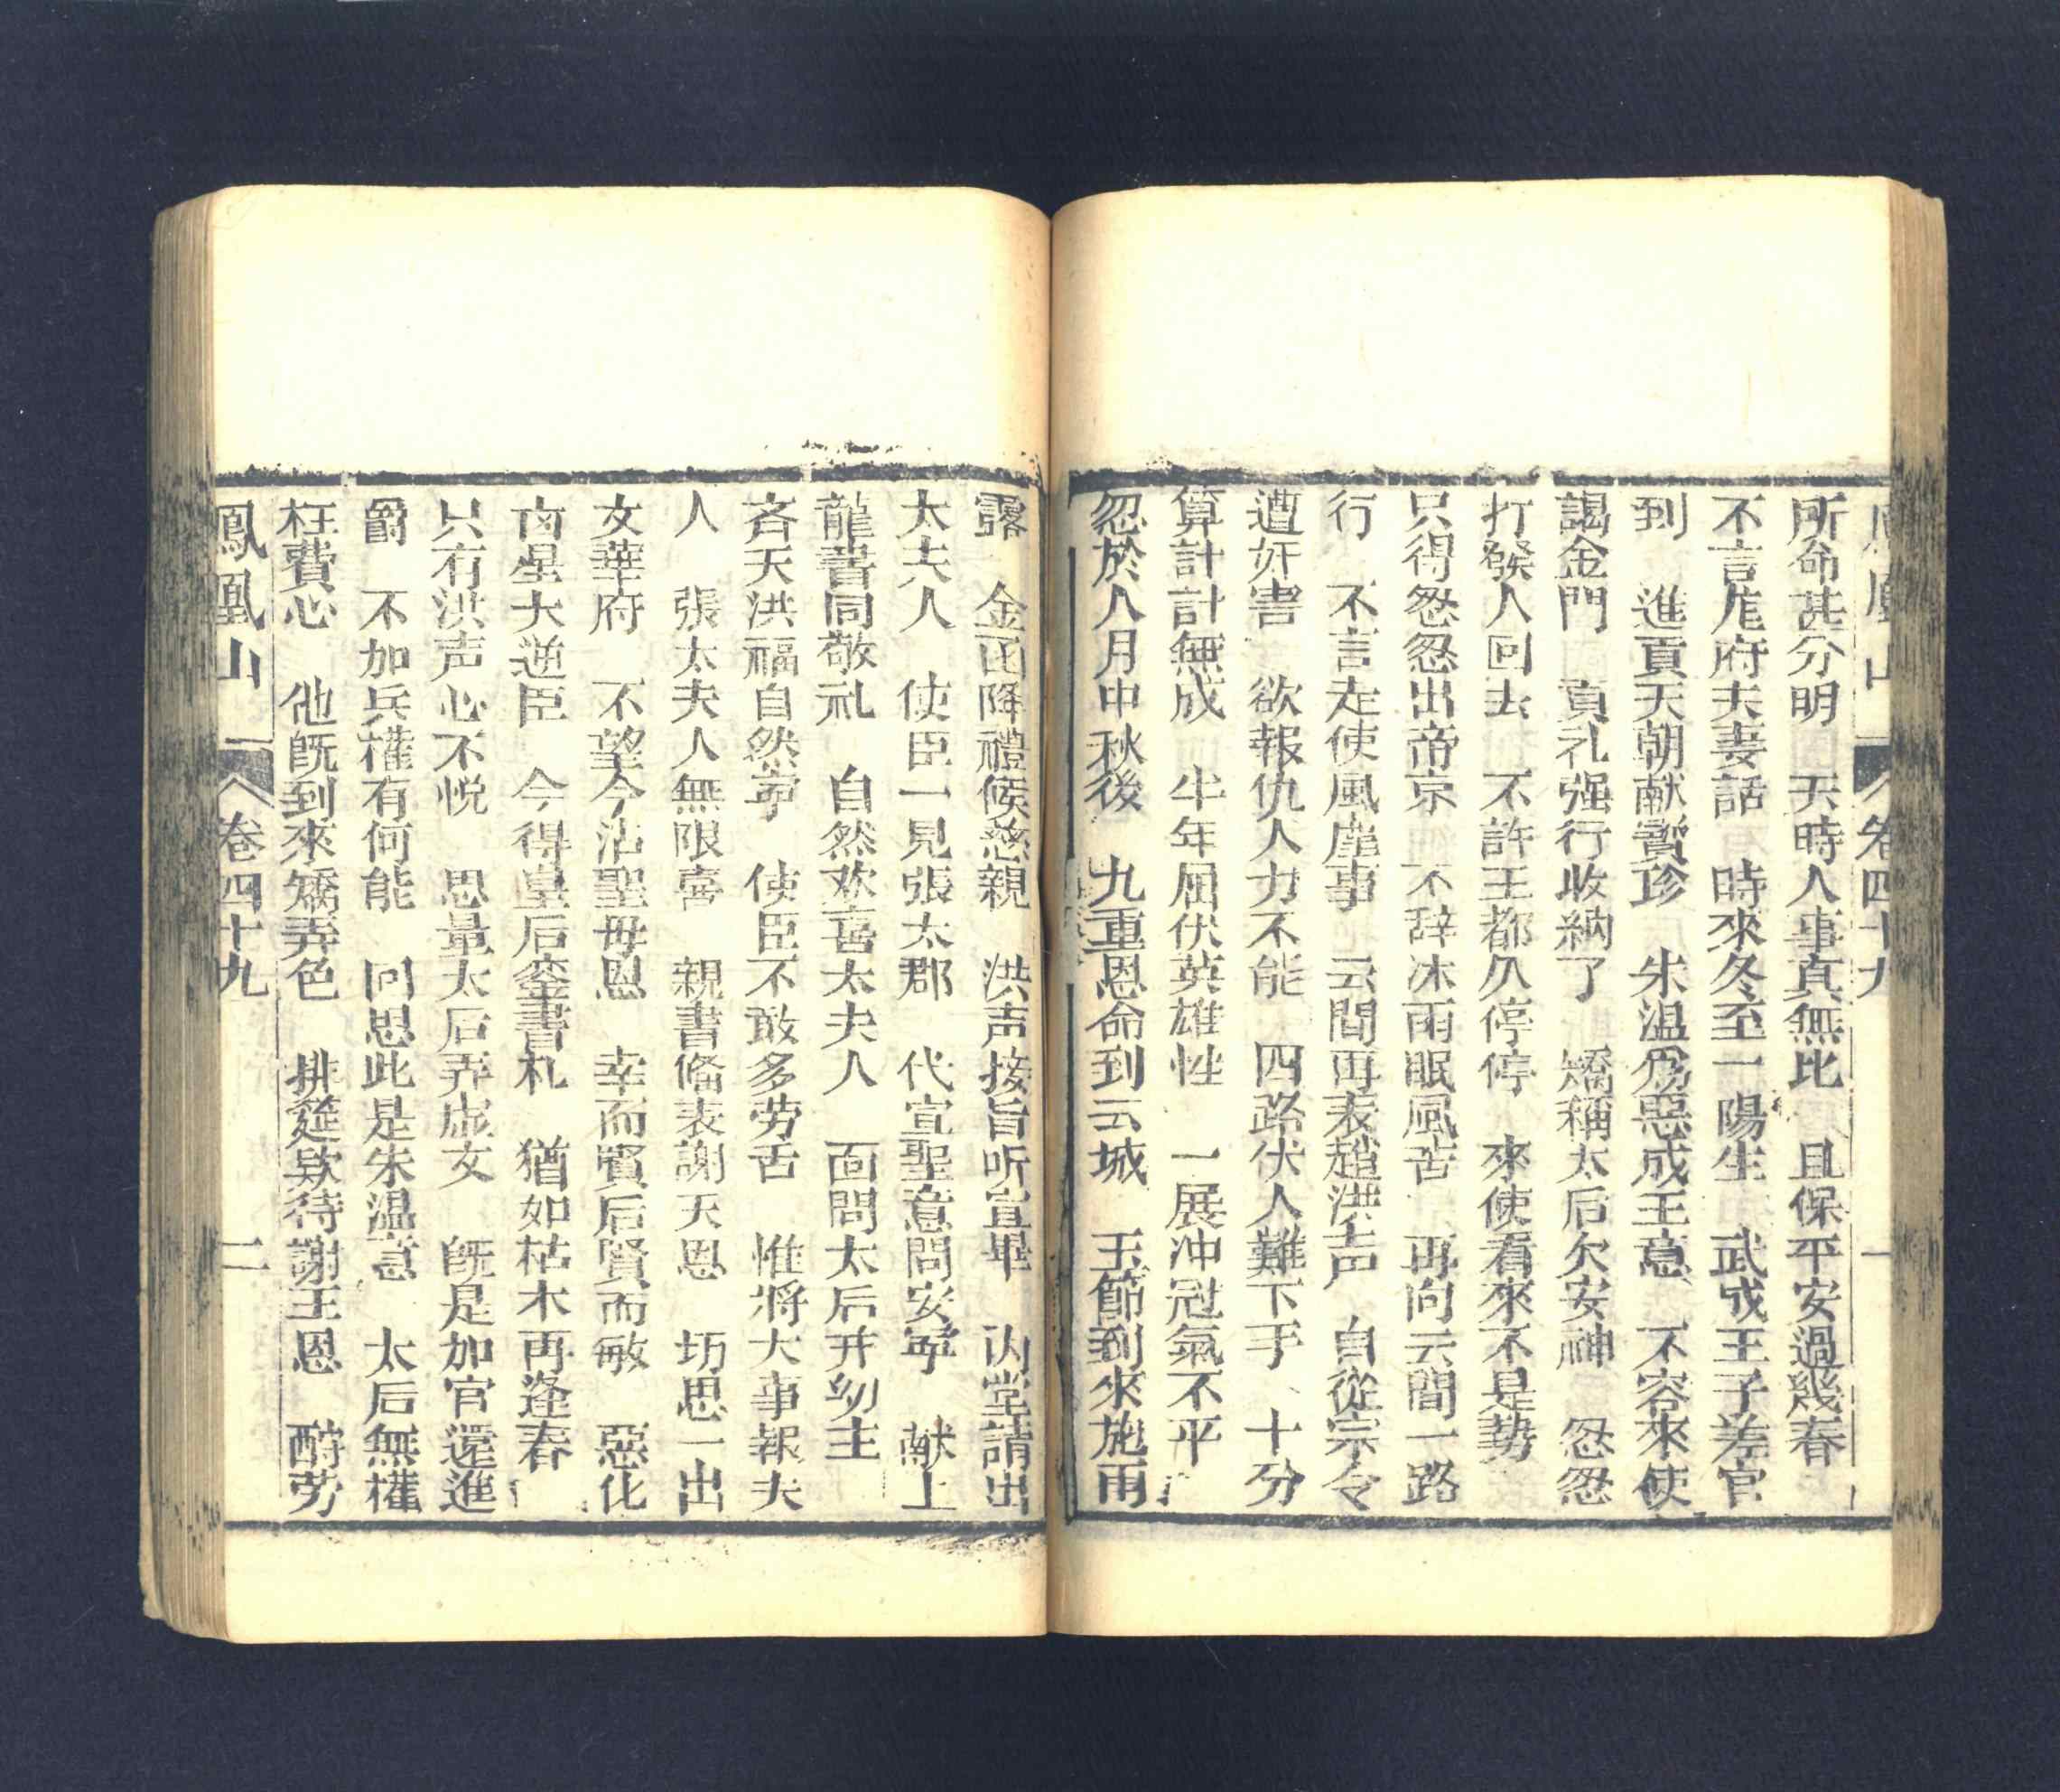 鳳凰山 卷四十九 一
所命甚分明 天時人事真無比 且保平安過幾春
不言庭府夫妻話 時來冬至一陽生 武成王子差官
到 進貢天朝献寳珍 朱温為惡成王意 不容來使
謁金門 貢礼强行收納了 矯稱太后欠安神 怱怱
打發人回去 不許王都久停停 來使看來不是勢
只得怱怱出帝京 不辞沐雨眠風苦 再向云間一路
行 不言走使風塵事 云間再表趙洪声 自從宗令
遭奸害 欲報仇人力不能 四路伏人難下手 十分
算計計無成 半年屈伏英雄性 一展冲冠氣不平
忽於八月中秋後 九重恩命到云城 玉節到來施雨
露 金函降禮候慈親 洪声接旨听宣畢 内堂請出
太夫人 使臣一見張太郡 代宣聖意問安寧 献上
龍書同敬礼 自然欢喜太夫人 面問太后并幼主
斉天洪福自然寧 使臣不敢多劳舌 惟将大事報夫
人 張太夫人無限喜 親書脩表謝天恩 坊思一出
文華府 不望今沾聖母恩 幸而賢后賢而敏 惡化
卤星大逆臣 今得皇后鑾書札 猶如枯木再逢春
只有洪声心不悦 思量太后弄虛文 旣是加官還進
爵 不加兵權有何能 回思此是朱温意 太后無權
枉費心 他旣到來矯弄色 排筵欵待謝王恩 酧劳
鳳凰山 卷四十九 二